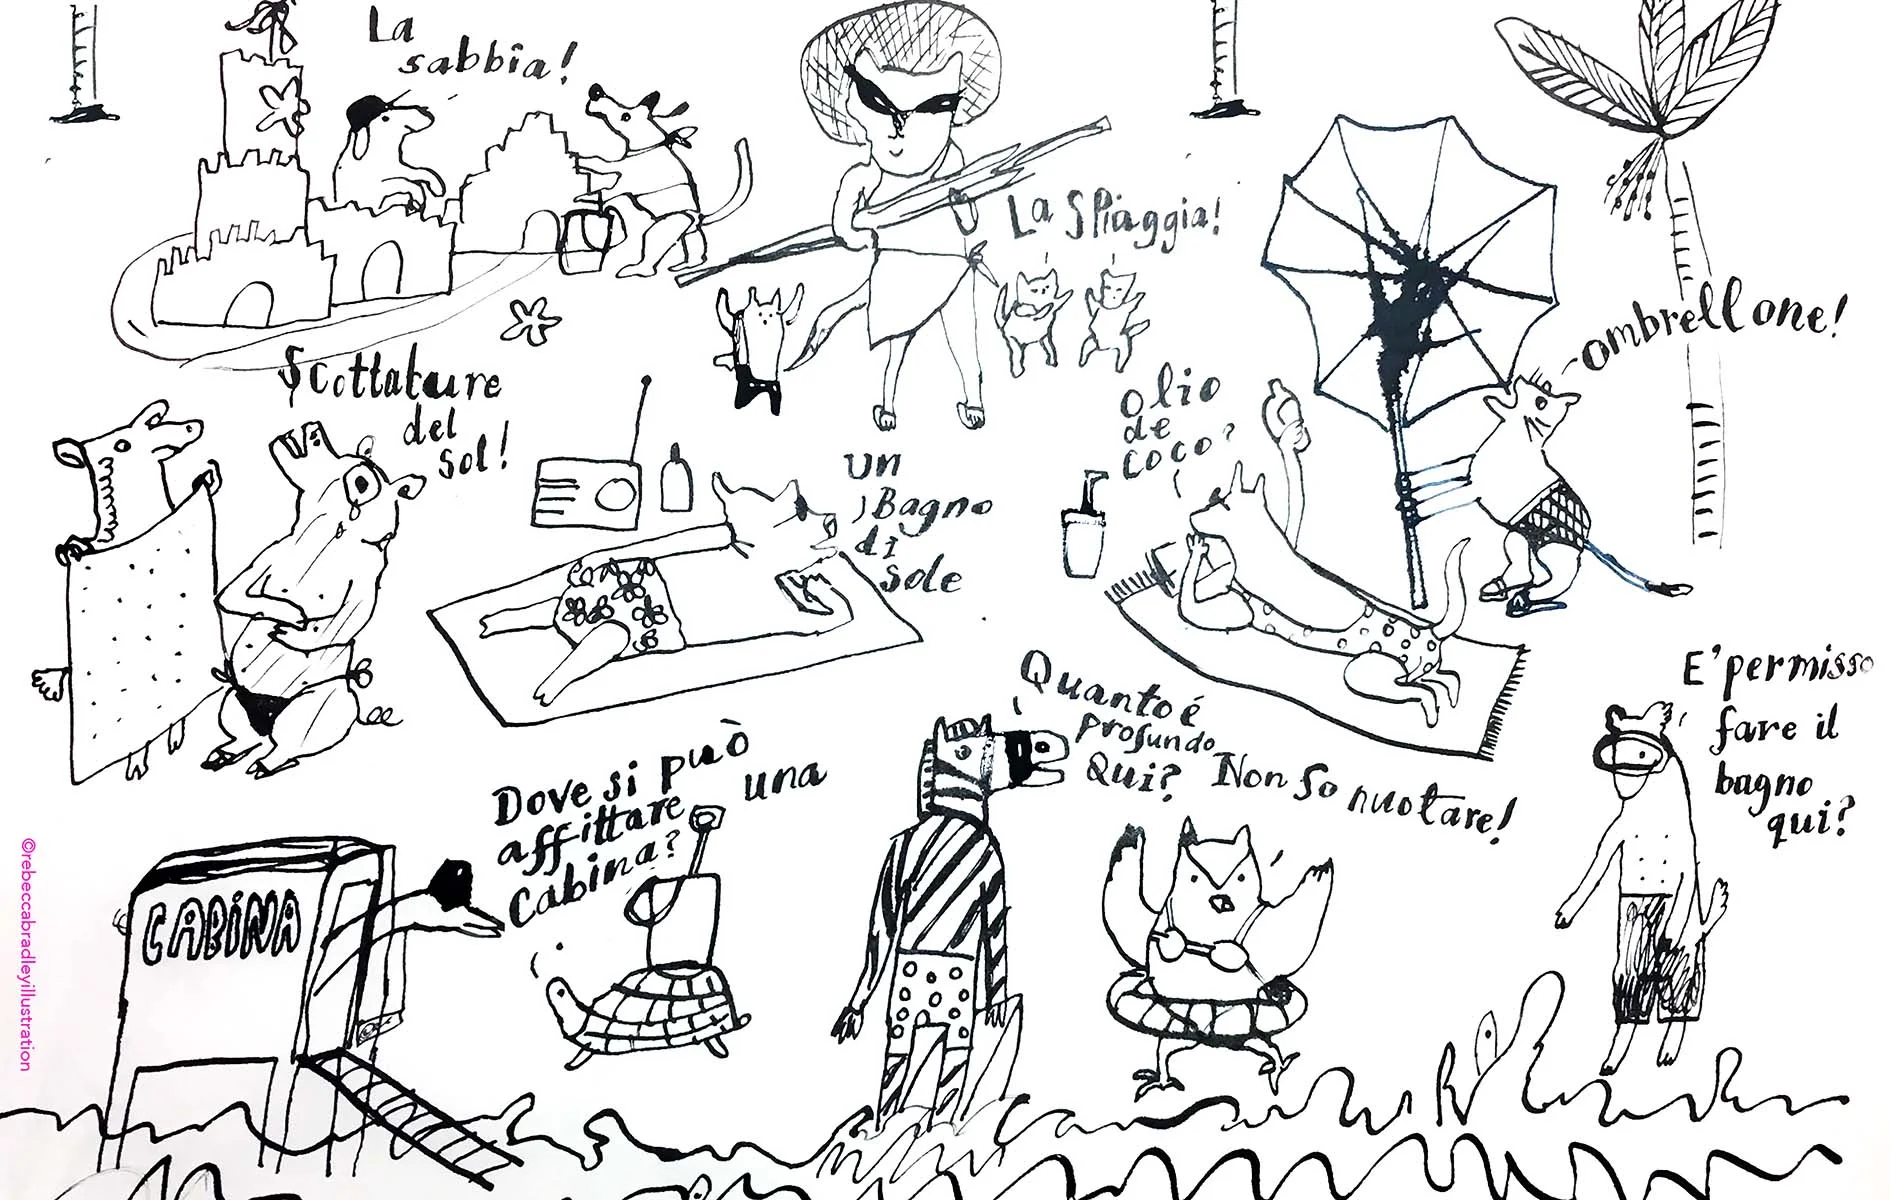 La
sabbia!
La Spiaggia!
ombrellone!
Scottature
del
sol!
un
Bagno
di
sole
olio
de
coco?
E'permisso
fare il
bagno
qui?
Quanto é
profundo
Qui?
Non so nuotare!
Dove si può
affittare una
cabina?
CABINA
©rebeccabradleyillustration